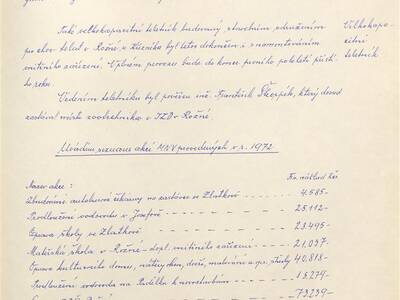 Také velkokapacitní teletník budovaný stavebním sdružením
pro chov telat v Rožné u Křižníku byl letos dokončen i s namontováním
vnitřního zařízení. Úplném provozu bude do konce prvního pololetí příští-
ho roku.
Velkokapa-
citní
teletník
Vedením teletníku byl pověřen ing. František Skřepek, který dosud
zastával místo zootechnika v JZD v Rožné.
Uvádím seznam akcí MNV provedených v r. 1972
Název akce:
Fin. náklad Kčs
Zbudování autobusové čekárny na zastávce ve Zlatkově 4.585.-
Prodloužení vodovodu v Josefově 25.112.-
Oprava školy ve Zlatkově 23.495.-
Mateřská škola v Rožné - dopl. vnitřního zařízení 21.037.-
Oprava kulturního domu, nátěry oken, dveří, malování a op. studny 40.818.-
Prodloužení vodovodu na Padělka k novostavbám 15.279.-
73.239.-